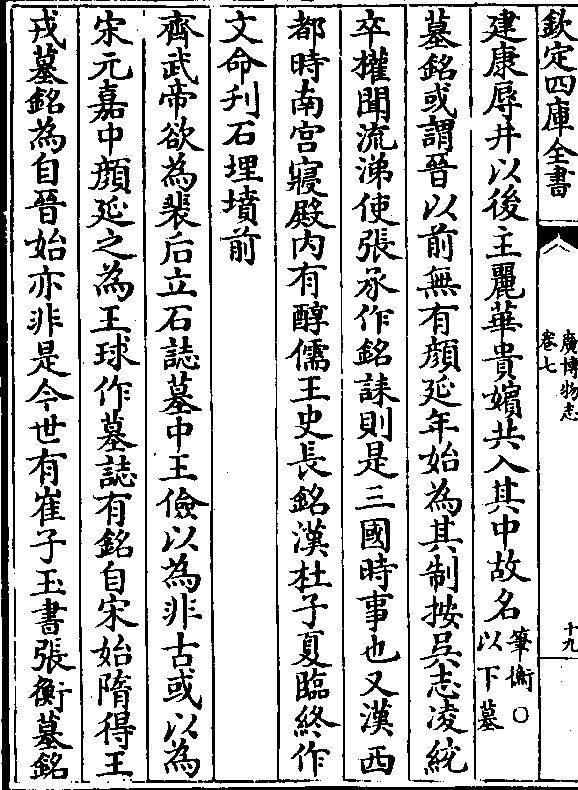 欽定四庫全書
廣博物志
卷七
十九
建康辱井以後主麗華貴嬪共入其中故名筆衡○以下墓
墓銘或謂晉以前無有顔延年始為其制按吳志凌統
卒權聞流涕使張承作銘誄則是三國時事也又漢西
都時南宫寢殿内有醇儒王史長銘漢杜子夏臨終作
文命刋石埋墳前
齊武帝欲為裴后立石誌墓中王儉以為非古或以為
宋元嘉中顔延之為王球作墓誌有銘自宋始隋得王
戎墓銘為自晉始亦非是今世有崔子玉書張衡墓銘